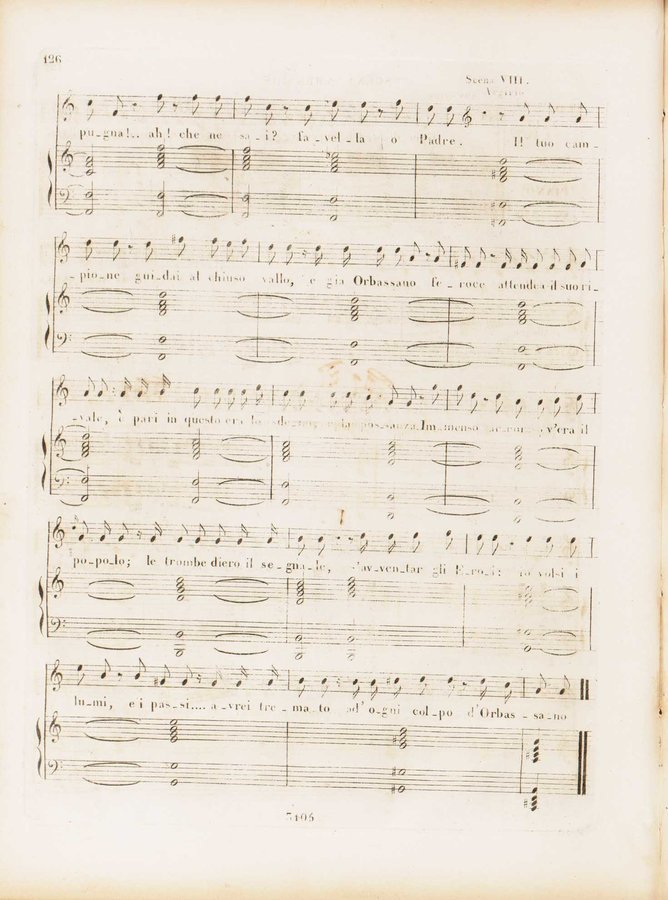 126
Scena VIII.
Argirio
pu_gna!.. ah! che ne sa_i? fa_vel_la o Padre. Il tuo cam_
_pio_ne gui_dai al chiuso vallo, e già Orbassano fe_roce attendea il suo ri_
_vale, è pari in questo era lo sdegno, e la possanza. Immenso v'era il
po_polo; le trombe diero il se_gna_le, s'av_ven_tar gli E_roi: io volsi i
lu_mi, e i pas_si.... a_vrei tre_ma_to ad'o_gni col_po d'Orbas_sa_no